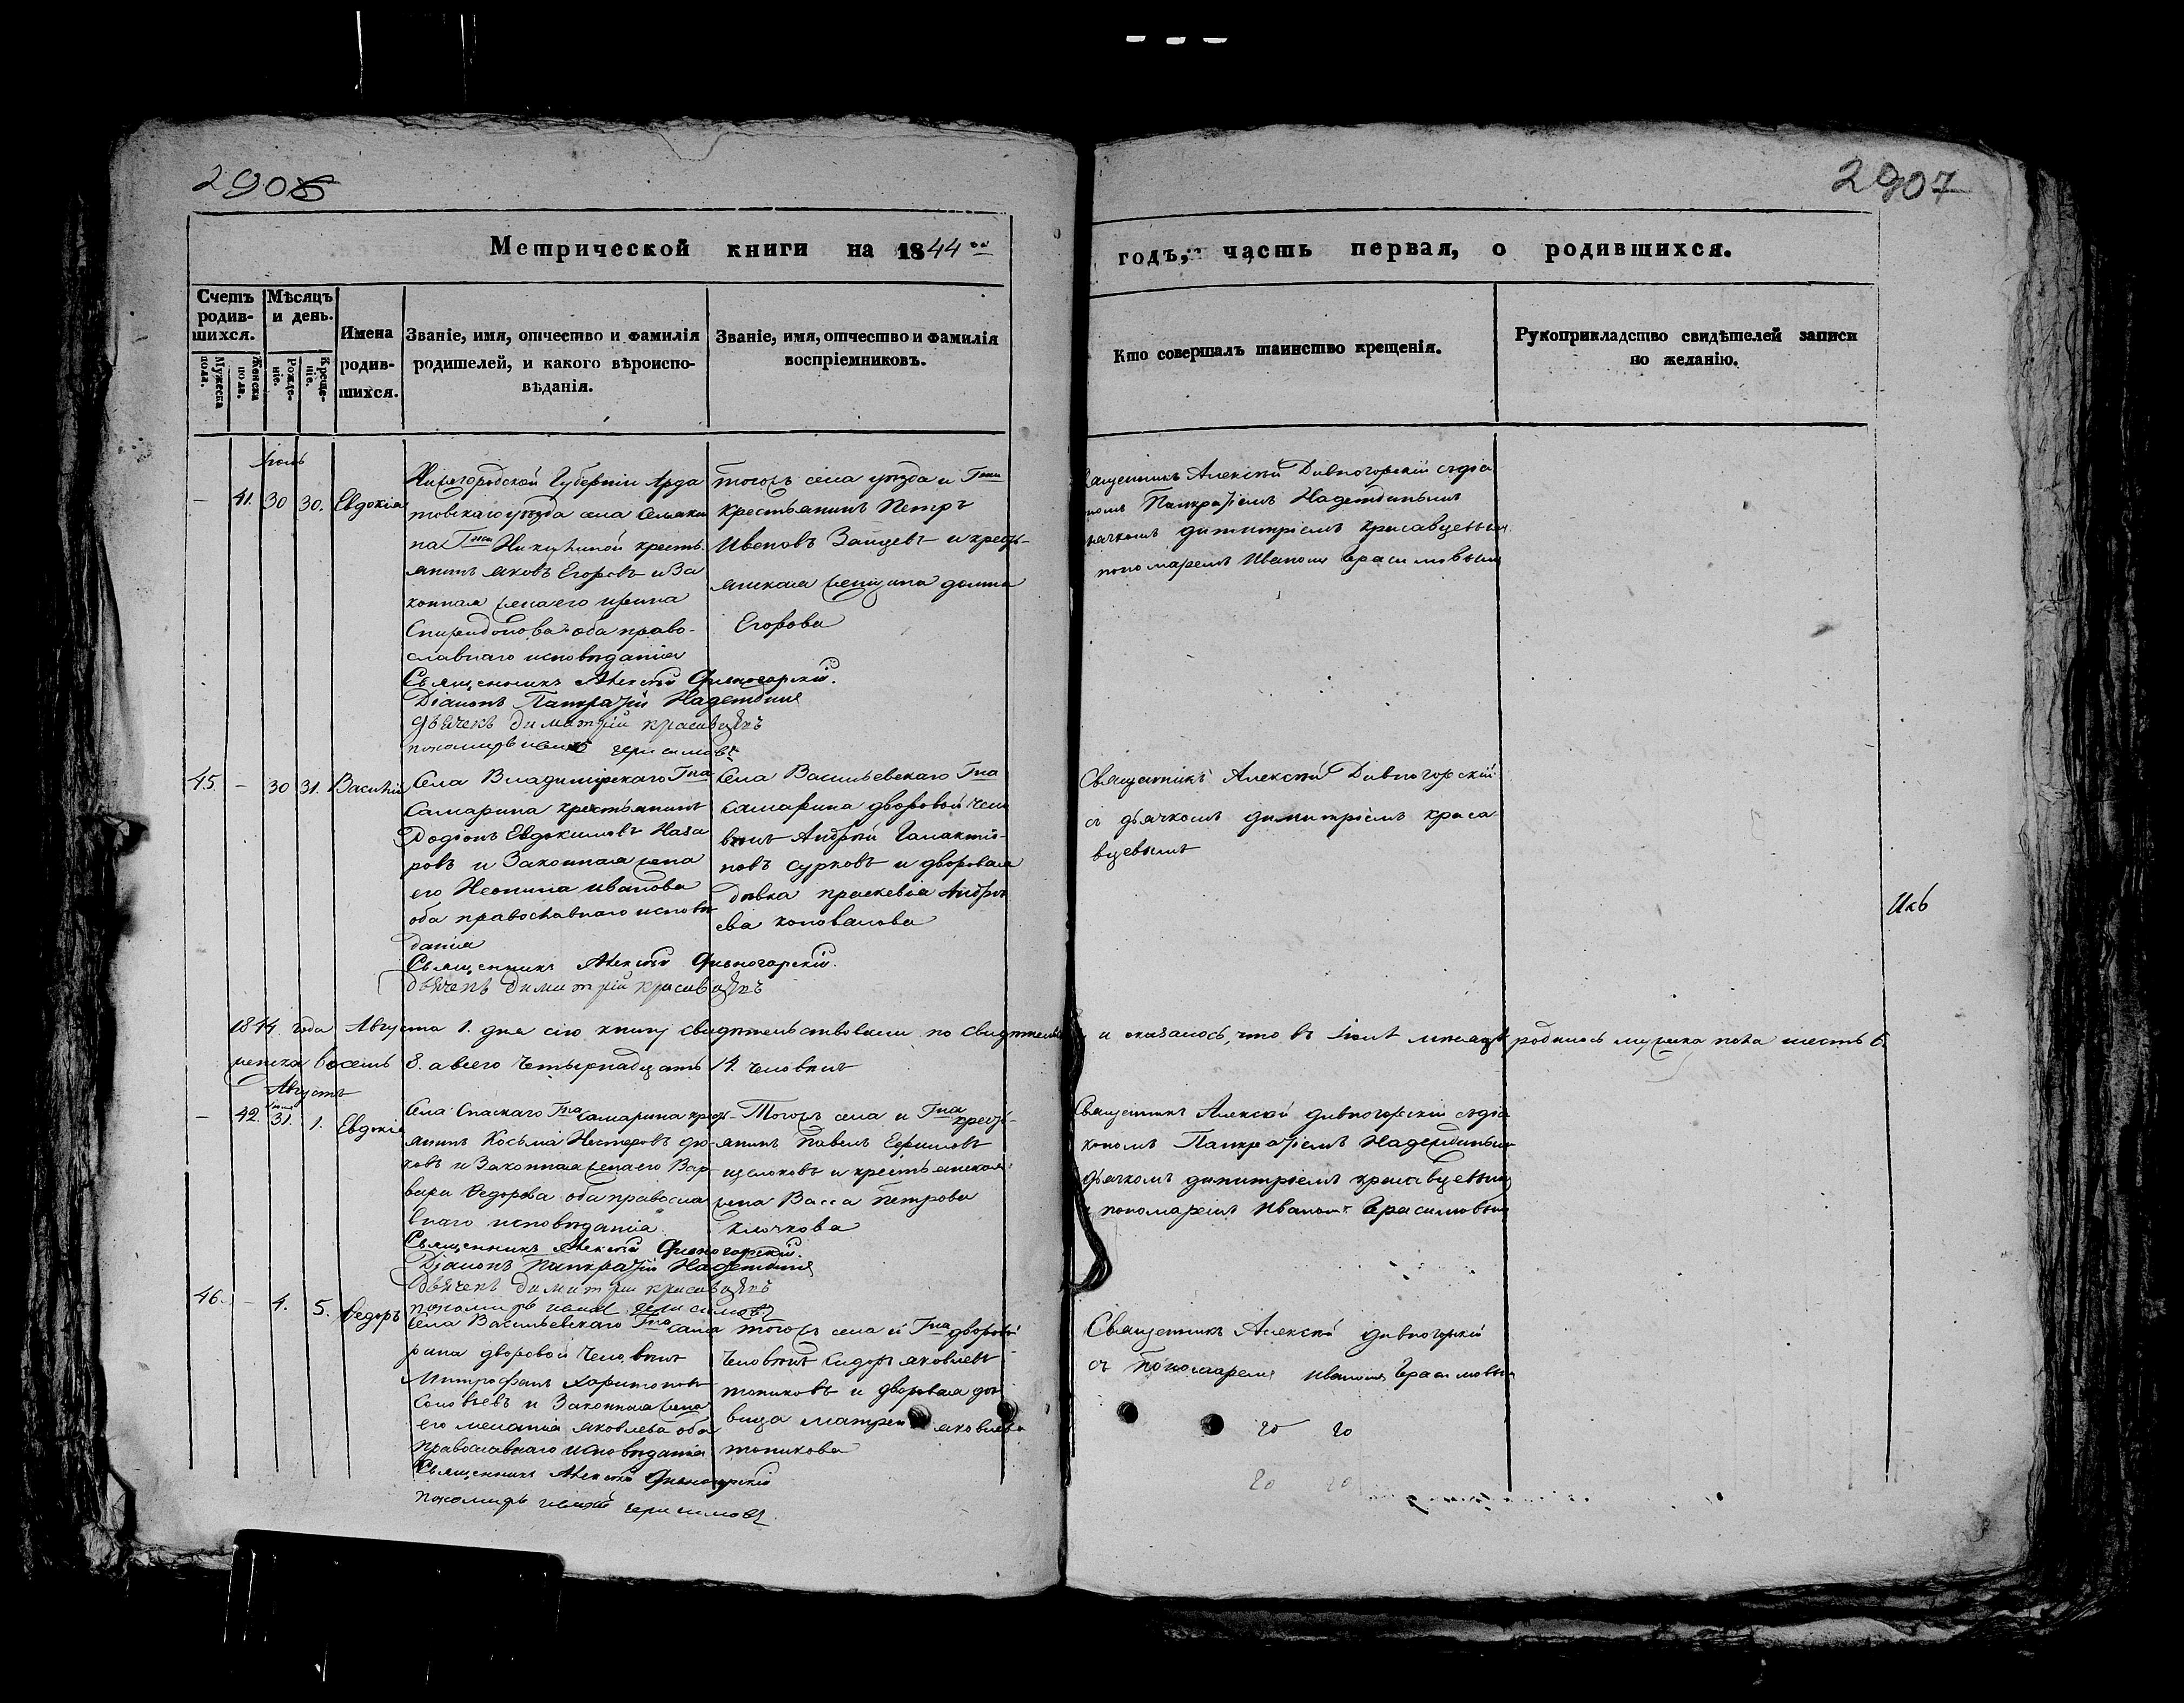 2906
2907
Метрической книги на 1844
годъ, часть первая, о родившихся.
Счетъ родившихся.
Мужеска пола.
Женска пола.
Мѣсяцъ и день.
Рожденіе.
Крещеніе.
Имена родившихся.
Званіе, имя, отчество и фамилія
родителей, и какого вѣроиспо-
вѣданія.
Званіе, имя, отчество и фамилія
воспріемниковъ.
Кто совершалъ таинство крещенія.
Рукоприкладство свидѣтелей записи
по желанію.
41. 30 30. Евдокіа
Нижегородской Губерніи Арда
товскаго уѣзда села
крестъ
янинъ Яковъ Егоровъ и За
конная жена его Ирина
Спиридонова оба право-
славнаго исповѣданіа
Священникъ Алексѣй Дивногорскій.
Діаконъ Панкратій Надеждинъ
дьячекъ димитрій красавцевъ
пономарь иванъ герасимовъ
тогожъ села уѣзда и Гна
крестьянинъ Петръ
Ивановъ Зайцевъ и кресть-
янская женщина домна
Егорова
Алексѣй Дивногорскій съ діа
Панкратіемъ Надеждинымъ
димитріемъ красавцевымъ
пономаремъ Иваномъ Герасимовым
45. - 30 31. Василій
Села Владимірскаго Гна
Самарина крестьянинъ
Родіонъ Евдокимовъ Наза
ровъ и Законная жена
его Неонила иванова
оба православнаго исповѣ
даніа
Священникъ Алексѣй Дивногорскій.
дьячекъ димитрій красавцевъ
Села Васильевскаго Гна
Самарина дворовой чело
вѣкъ Андрей Галактіо-
новъ Сурковъ и дворовая
дѣвка праскевіа Андре
ева коновалова
Священникъ Алексѣй Дивногорскій
съ дьячкомъ димитріемъ краса
вцевымъ
1844. года Августа 1. дня сію книгу свидѣтельствовали по свидѣтельс и оказалось, что въ Іюлѣ мѣсяцѣ родилось мужска пола шесть 6.
женска восемь 8. а всего четырнадцать 14. человѣкъ
Августъ
42. 31. 1. Евдокіа
Села Спаскаго Гна Самарина кресть-
янинъ Косьма Нестеровъ
и Законная жена его Вар-
вара Федорова оба правосла
внаго исповѣданіа
Священникъ Алексѣй Дивногорскій.
Діаконъ Панкратій Надеждинъ
дьячекъ димитрій красавцевъ
пономарь иванъ герасимовъ
Тогожъ села и Гна кресть-
янинъ Павелъ Ефимовъ
и крестьянская
жена Васса Петрова
клочкова
Священникъ Алексѣй дивногорскій съ діа
кономъ Панкратіемъ Надеждинымъ
дьячкомъ димитріемъ красавцевымъ
пономаремъ Иваномъ Герасимовым
46. - 4. 5. Федоръ
Села Васильевскаго Гна Сама
рина дворовой человѣкъ
Митрофанъ Харитоновъ
Соловьевъ и Законная жена
его меланіа яковлева оба
православнаго исповѣданіа
Священникъ Алексѣй Дивногорскій
пономарь иванъ герасимовъ
тогожъ села и Гна дворовой
человѣкъ Сидоръ яковлевъ
и дворовая дѣ
вица матрена яковлева
Священникъ Алексѣй дивногорскій
съ пономаремъ иваномъ Герасимовым
20 20
20 20